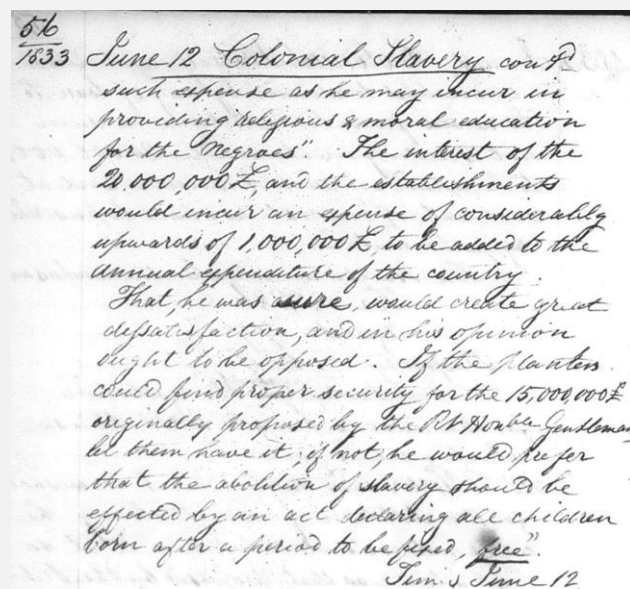 56
1833 June 12 Colonial Slavery contd.
such expense as he may incur in
providing religious & moral education
for the negroes". The interest of the
20.000.000£, and the establishments
would incur an expense of considerably
upwards of 1,000,000£, to be added to the
annual expenditure of the country.
That, he was sure, would create great
dissatisfaction, and in his opinion
ought to be opposed. If the planters
could find proper security for the 15,000,000£
originally proposed by the Rt Honble Gentleman
let them have it; if not, he would prefer
that the abolition of slavery should be
effected by an act declaring all children
born after a period to be fixed, free".
Times June 12